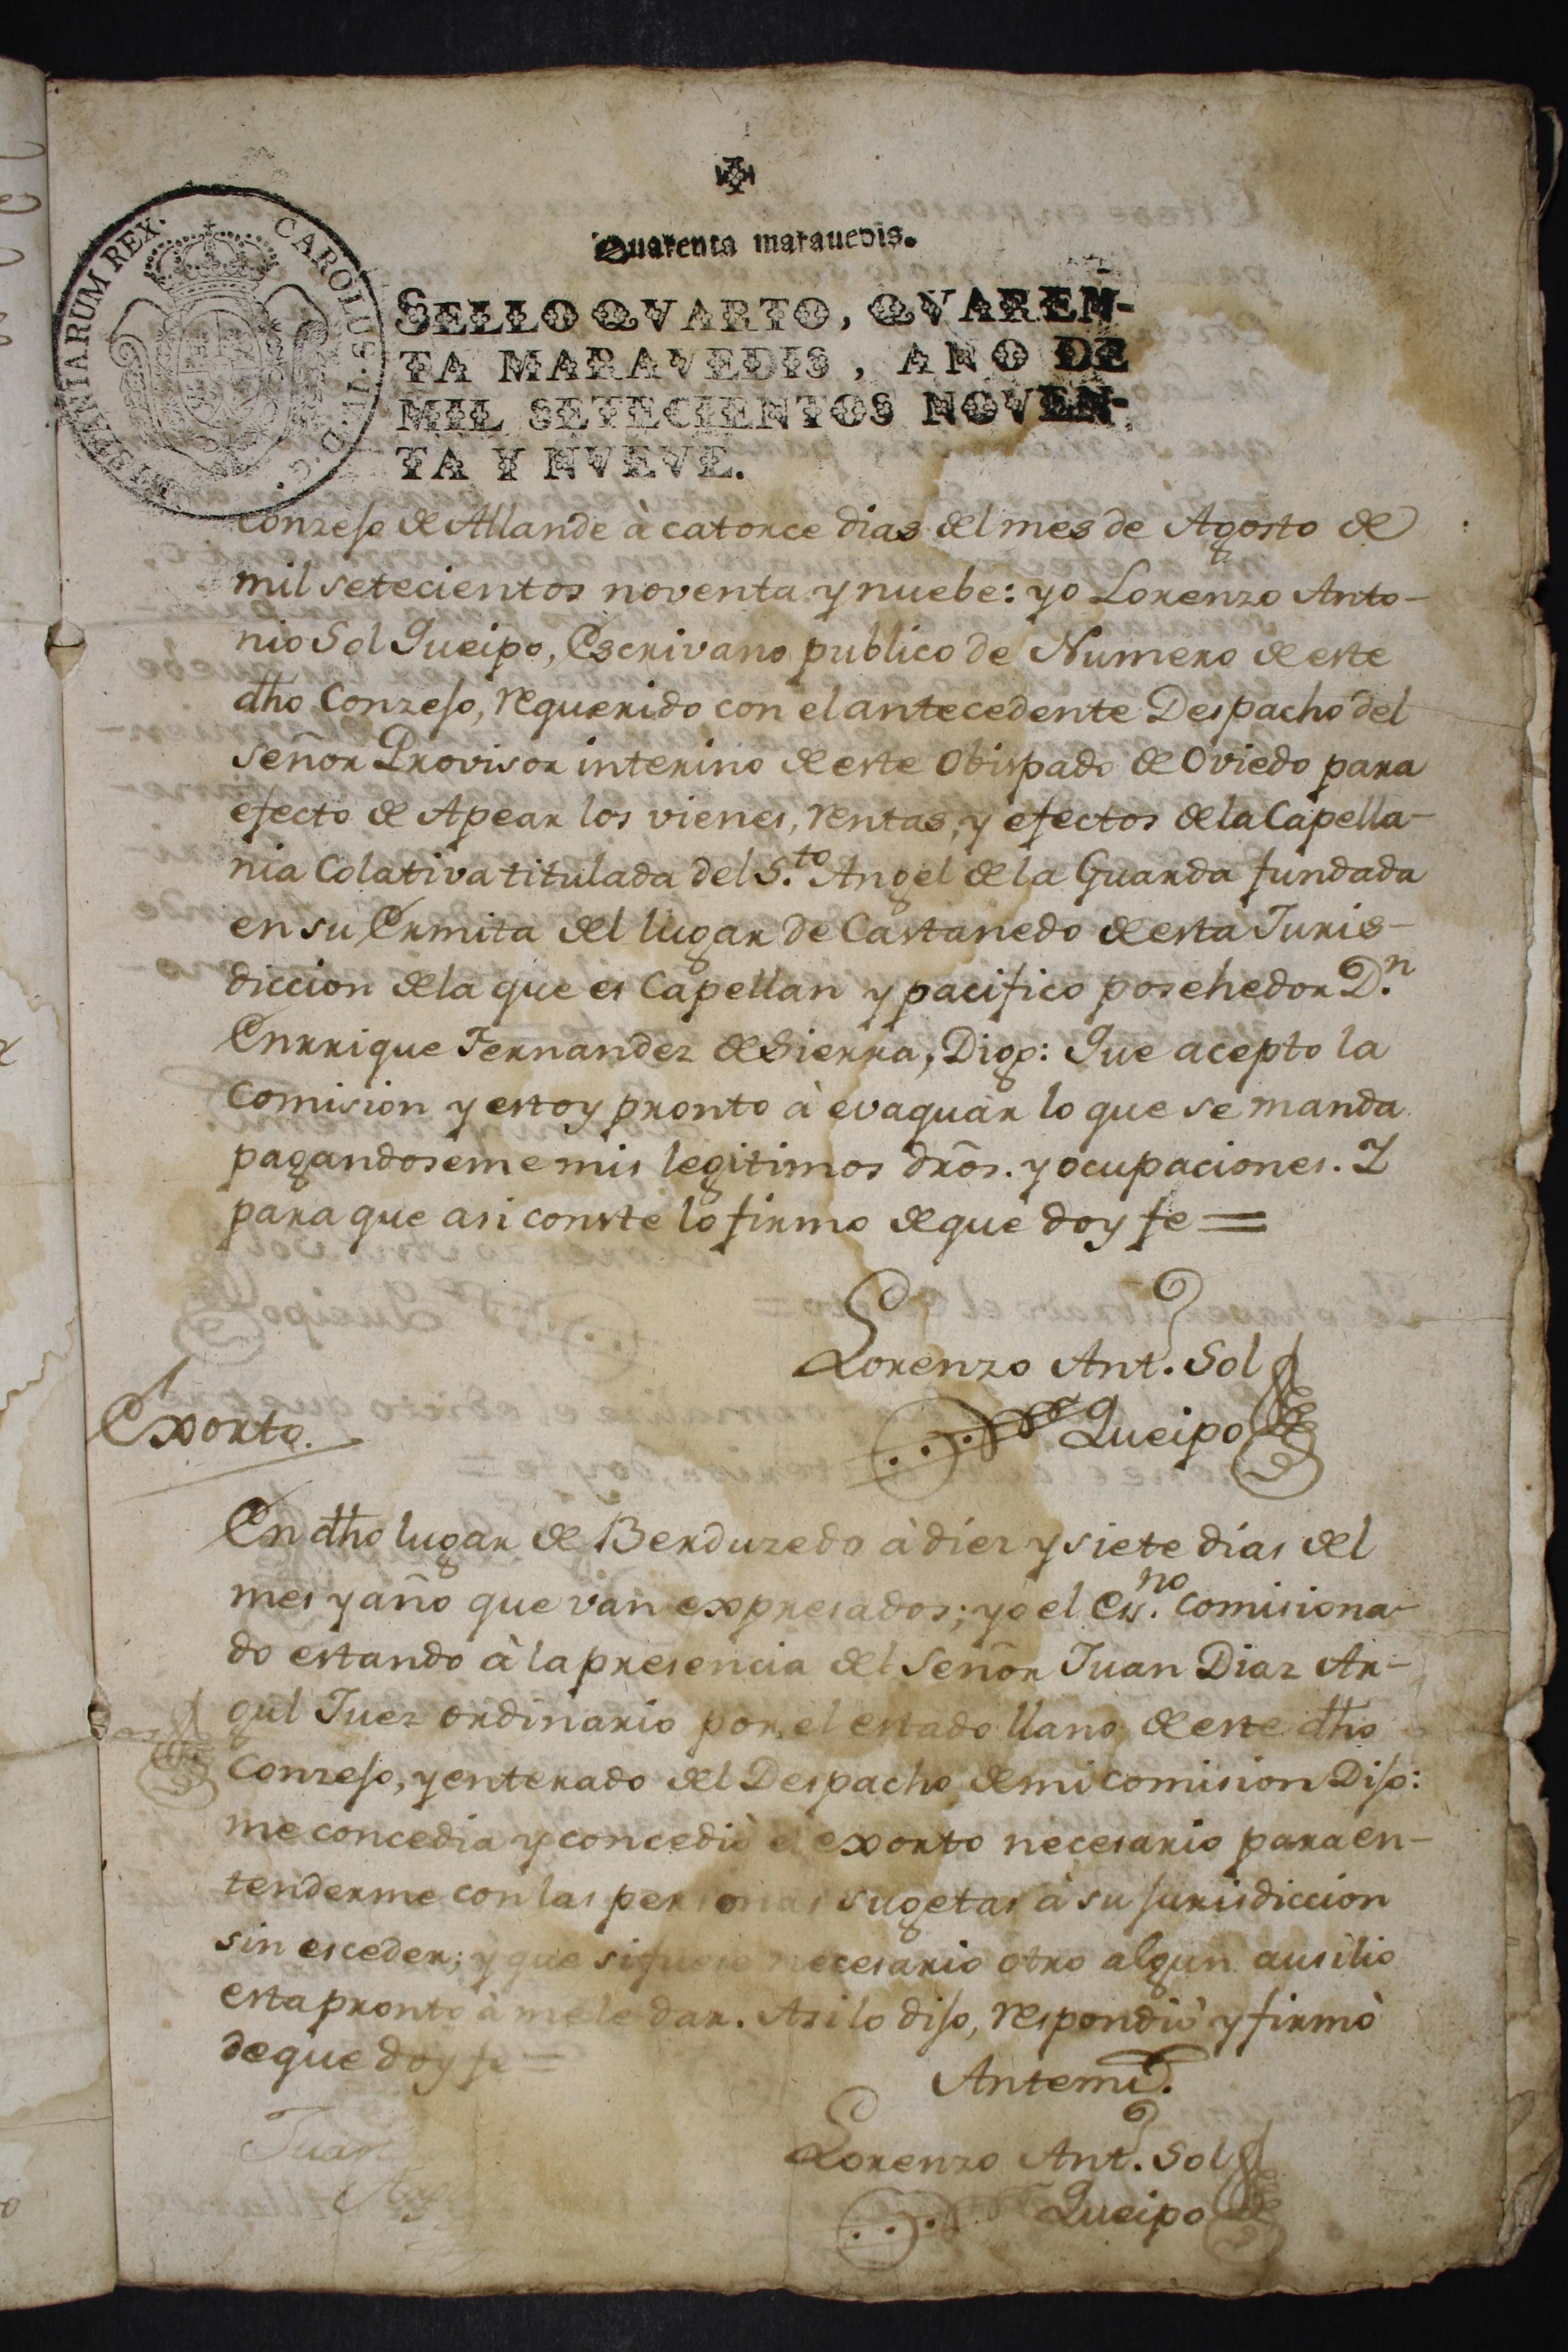 Quarenta marauedis.
CAROLUS IV. D. G. HISPANIARUM REX.
SELLO QVARTO, QVAREN-
TA MARAVEDIS, AÑO DE
MIL SETECIENTOS NOVEN-
TA Y NVEVE.
Conzejo de Allande à catorce dias del mes de Agosto de
mil setecientos noventa y nuebe: yo Lorenzo Anto-
nio Sol Queipo, Escrivano publico de Numero de este
dho Conzejo, requerido con el antecedente Despacho del
señor Provisor interino de este Obispado de Oviedo para
efecto de Apear los vienes, rentas, y efectos de la Capella-
nia Colativa titulada del S.to Angel de la Guarda fundada
en su Ermita del lugar de Castanedo de esta Juris-
diccion de la que es Capellan y pacifico posehedor D.n
Enrrique Fernandez de Sierra, Digo: Que acepto la
Comision y estoy pronto à evaquar lo que se manda
pagandoseme mis legitimos drõs. y ocupaciones. Y
para que asi conste lo firmo de que doy fe =
Lorenzo Ant.o Sol
Queipo
Exorto.
En dho lugar de Berduzedo à diez y siete dias del
mes y año que van expresados; yo el Es.no Comisiona-
do estando à la presencia del Señor Juan Diaz Ar-
gul Juez ordinario por el estado llano de este dho
Conzejo, y enterado del Despacho de mi comision Dijo:
me concedia y concediò el exorto necesario para en-
tenderme con las personas sugetas à su jurisdiccion
sin esceder; y que si fuese necesario otro algun ausilio
esta pronto à mele dar. Asi lo dijo, respondiò y firmò
de que doy fe =
Antemi.
Juan
Lorenzo Ant.o Sol
Queipo